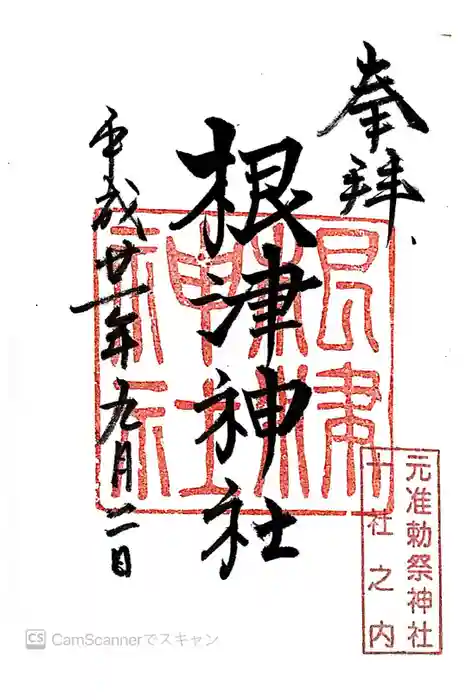 奉拝
根津神社
根津神社
平成廿一年九月二日
元准勅祭神社
十社之内
CS CamScannerでスキャン